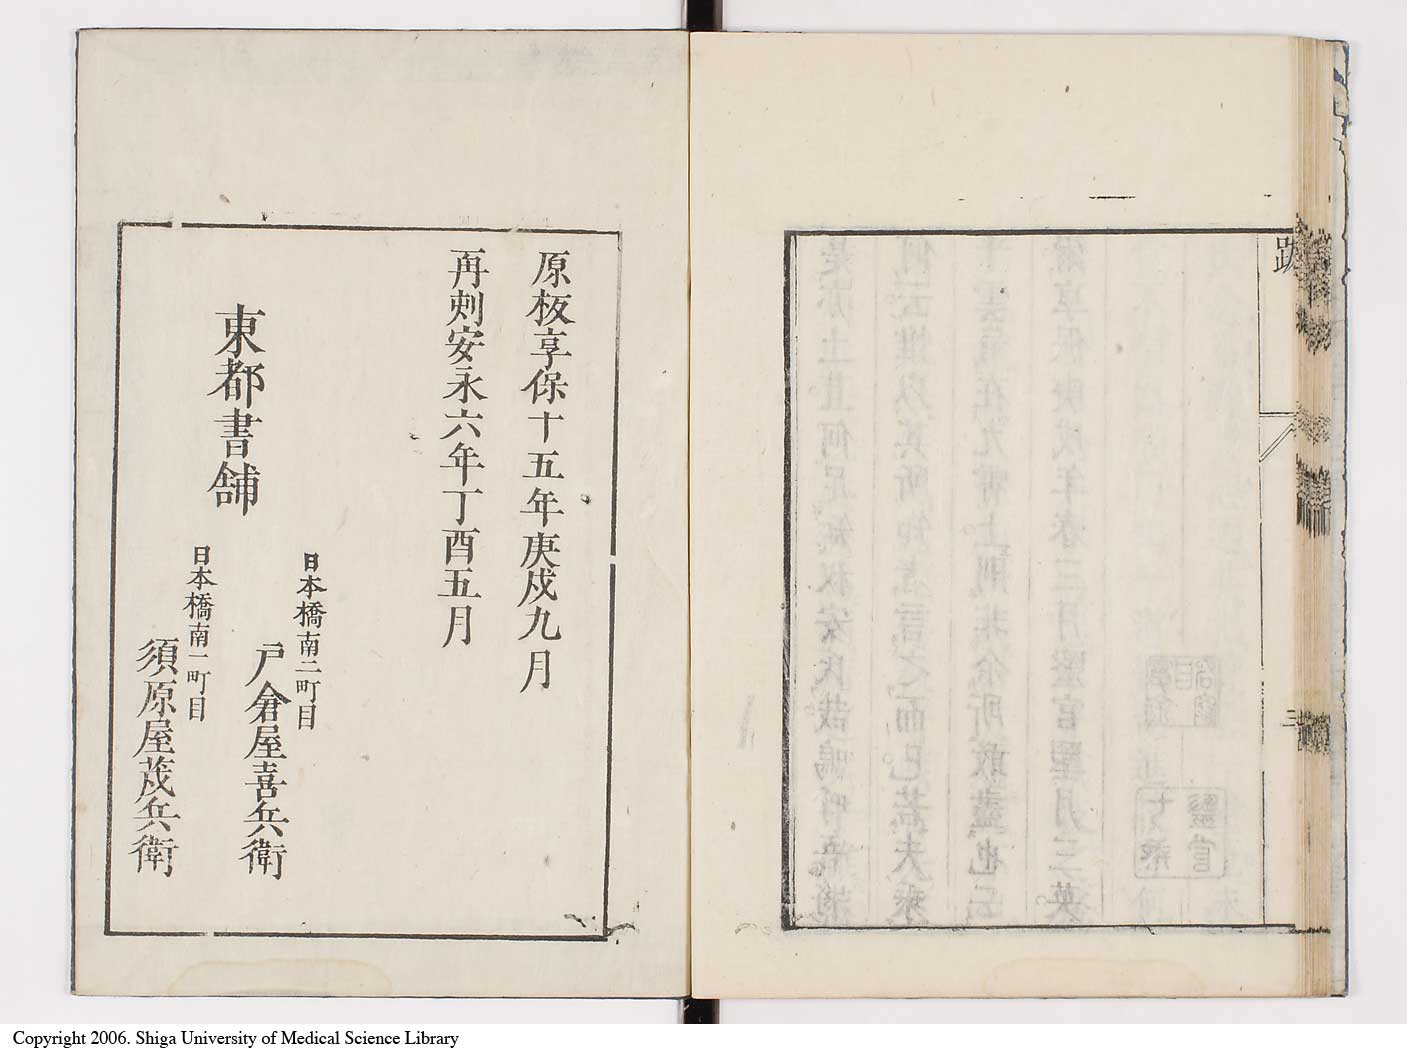 跋
三
原板享保十五年庚戌九月
再刻安永六年丁酉五月
東都書舗
日本橋南二町目
戸倉屋喜兵衛
日本橋南一町目
須原屋茂兵衛
Copyright 2006. Shiga University of Medical Science Library